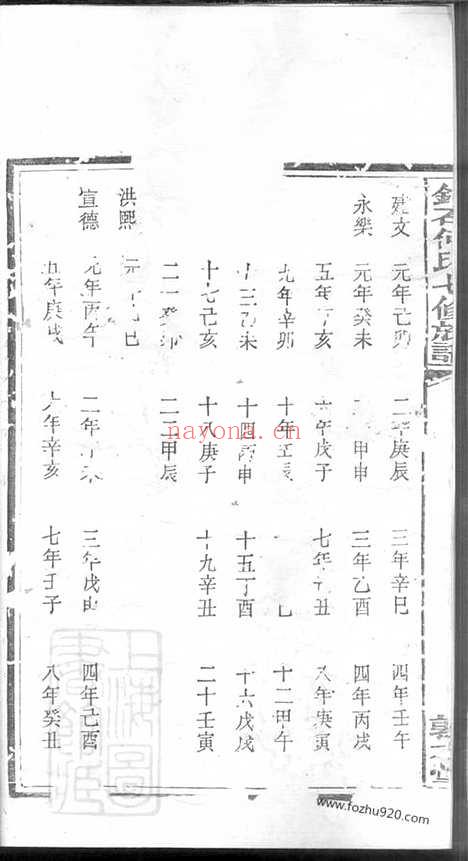 建文 元年己卯 二年庚辰 三年辛巳 四年壬午
永樂 元年癸未 甲申 三年乙酉 四年丙戌
五年丁亥 六年戊子 七年己丑 八年庚寅
九年辛卯 十年壬辰 十二甲午
十三乙未 十四丙申 十五丁酉 十六戊戌
十七己亥 十八庚子 十九辛丑 二十壬寅
二一癸卯 二二甲辰
洪熙 元年乙巳
宣德 元年丙午 二年丁未 三年戊申 四年己酉
五年庚戌 六年辛亥 七年壬子 八年癸丑
何氏七修族譜
上海圖書館藏
nayona.cn
www.fozhu920.com